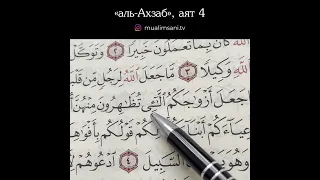 «аль-Ахзаб», аят 4
mualimsani.tv
ٱللَّهَ كَانَ بِمَا تَعۡمَلُونَ خَبِيرٗا ٢ وَتَوَكَّلۡ
ٱللَّهِ وَكِيلٗا ٣ مَّا جَعَلَ ٱللَّهُ لِرَجُلٖ مِّن قَلۡبَ
جَعَلَ أَزۡوَٰجَكُمُ ٱلَّٰٓـِٔي تُظَٰهِرُونَ مِنۡهُنَّ أُ
عِيَآءَكُمۡ أَبۡنَآءَكُمۡ قَوۡلُكُم بِأَفۡوَٰهِ
وَهُوَ ٱلسَّبِيلَ ٤ ٱدۡعُوهُمۡ